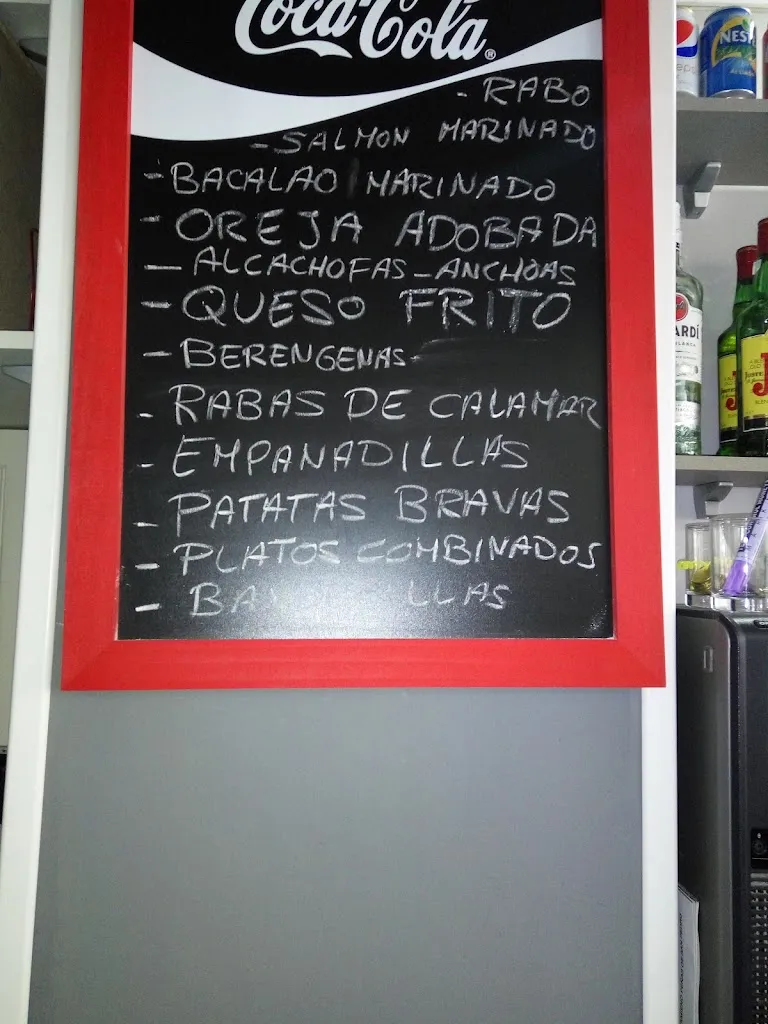 Coca-Cola®
- RABO
- SALMON MARINADO
- BACALAO MARINADO
- OREJA ADOBADA
- ALCACHOFAS - ANCHOAS
- QUESO FRITO
- BERENGENAS -
- RABAS DE CALAMAR
- EMPANADILLAS
- PATATAS BRAVAS
- PLATOS COMBINADOS